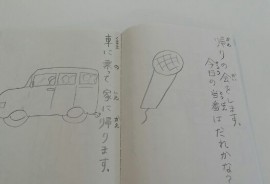 帰りの会をします。
今日の当番はだれかな?
車に乗って家に帰ります。